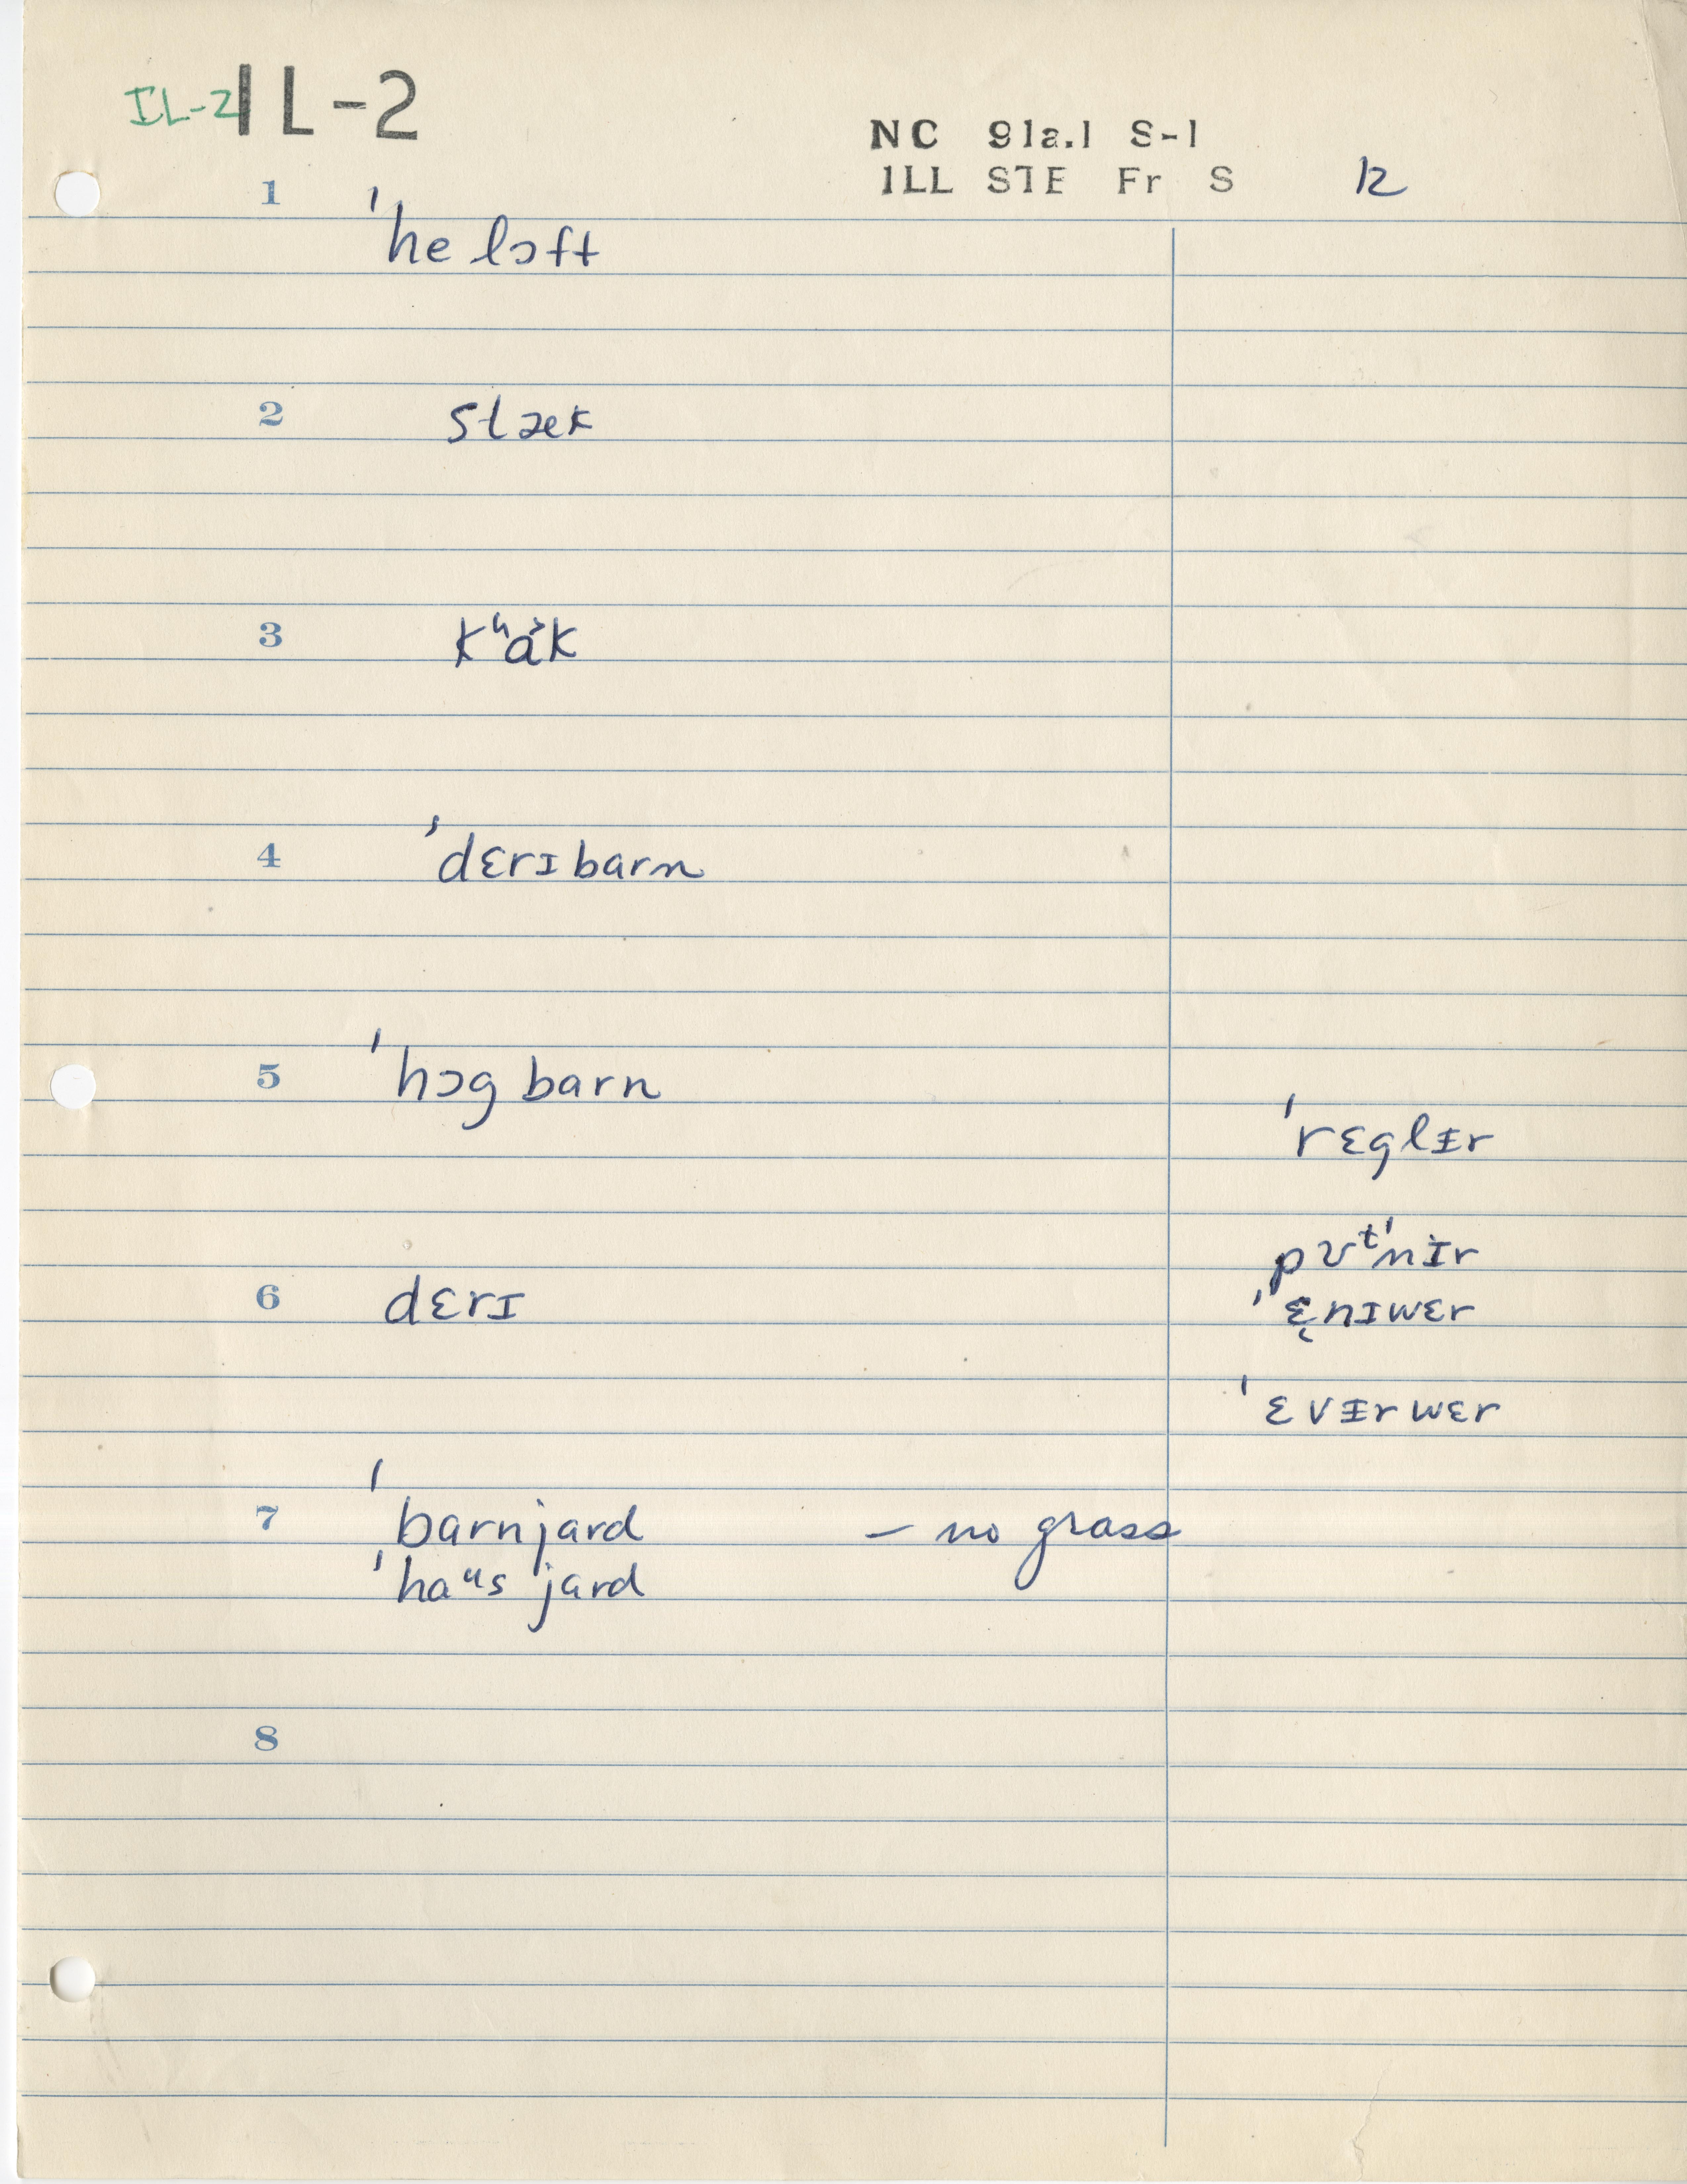 IL-2 IL-2
NC 91a.1 S-1
ILL STE Fr S 12
1 ˈhe lɔft
2 stæk
3 kʰɑ˃k
4 ˈdɛrɪ barn
5 ˈhɔg barn
ˈrɛglɨr
ˈɛ˃nɪwɛr
6 dɛrɪ
ˈɛvɨrwɛr
7 ˈbarnjard — no grass
ˈhaᵘs jard
8